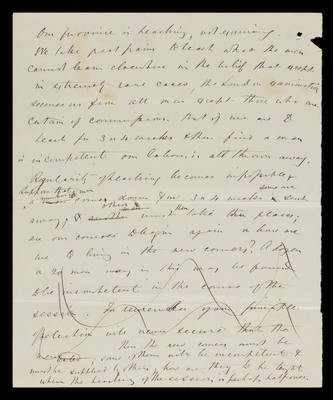 Our province is teaching, not examining.
We take great pains to teach what the men
cannot learn elsewhere in the belief that except
in extremely rare cases, the London examination
secures us from all men except those who are
certain of commissions. But if we are to
teach for 3 or 4 weeks & then find a man
is incompetent our labour is all thrown away.
Regularity of teaching becomes impossible
Suppose that some are
a dozen come for 3 or 4 weeks & are sent
away; & others must then take their places;
are our courses to begin again or how are
we to bring in the new comers? A dozen
or 20 men may in this way be found
to be incompetent in the course of the
session. In
selection will never secured that the
Then the new comers must be
some of them will be incompetent &
must be supplied by others, & how are they to be taught
when the teaching of the session is perhaps half over.